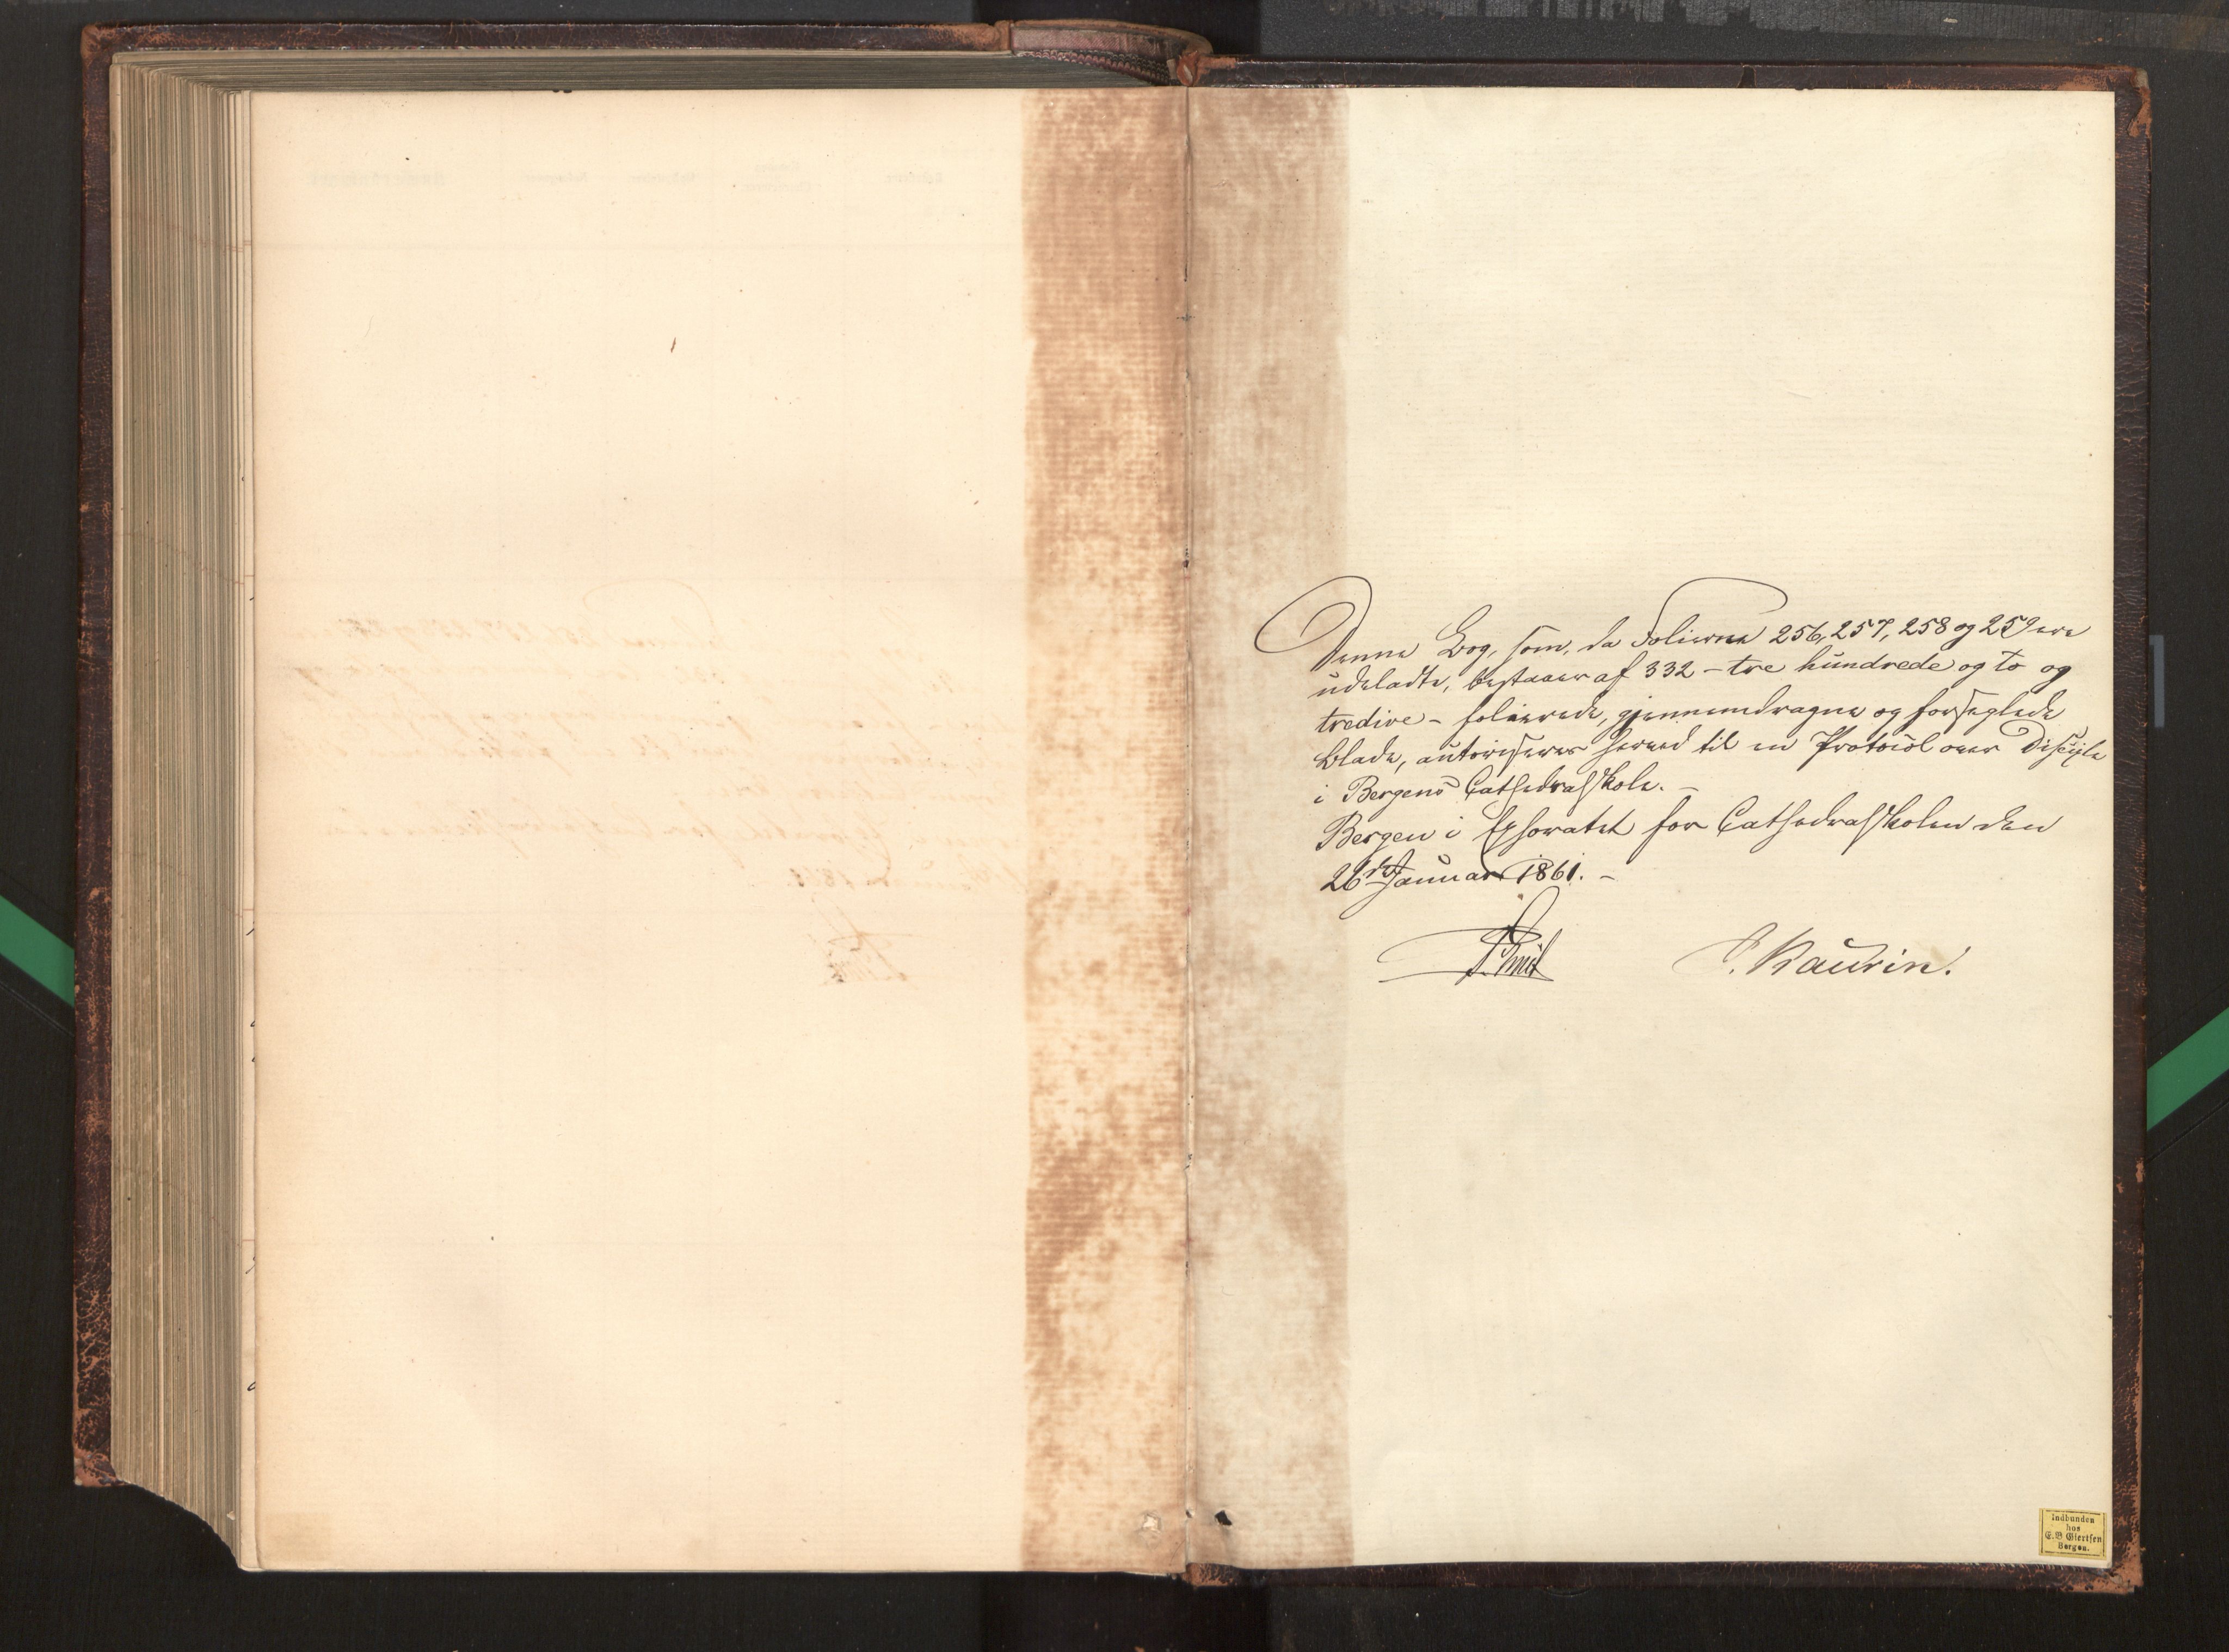 Denne Bog, som, da Folierne 256, 257, 258 og 259 ere
udeladte, bestaaer af 332 – tre hundrede og to og
tredive – folierede, gjennemdragne og forseglede
Blade, autoriseres herved til en Protocol over Disciple
i Bergens Cathedralskole. –
Bergen i Ephoratet for Cathedralskolen den
26de Januar 1861. –
J. Kaurin.
Indbunden
hos
E. B Giertsen
Bergen.